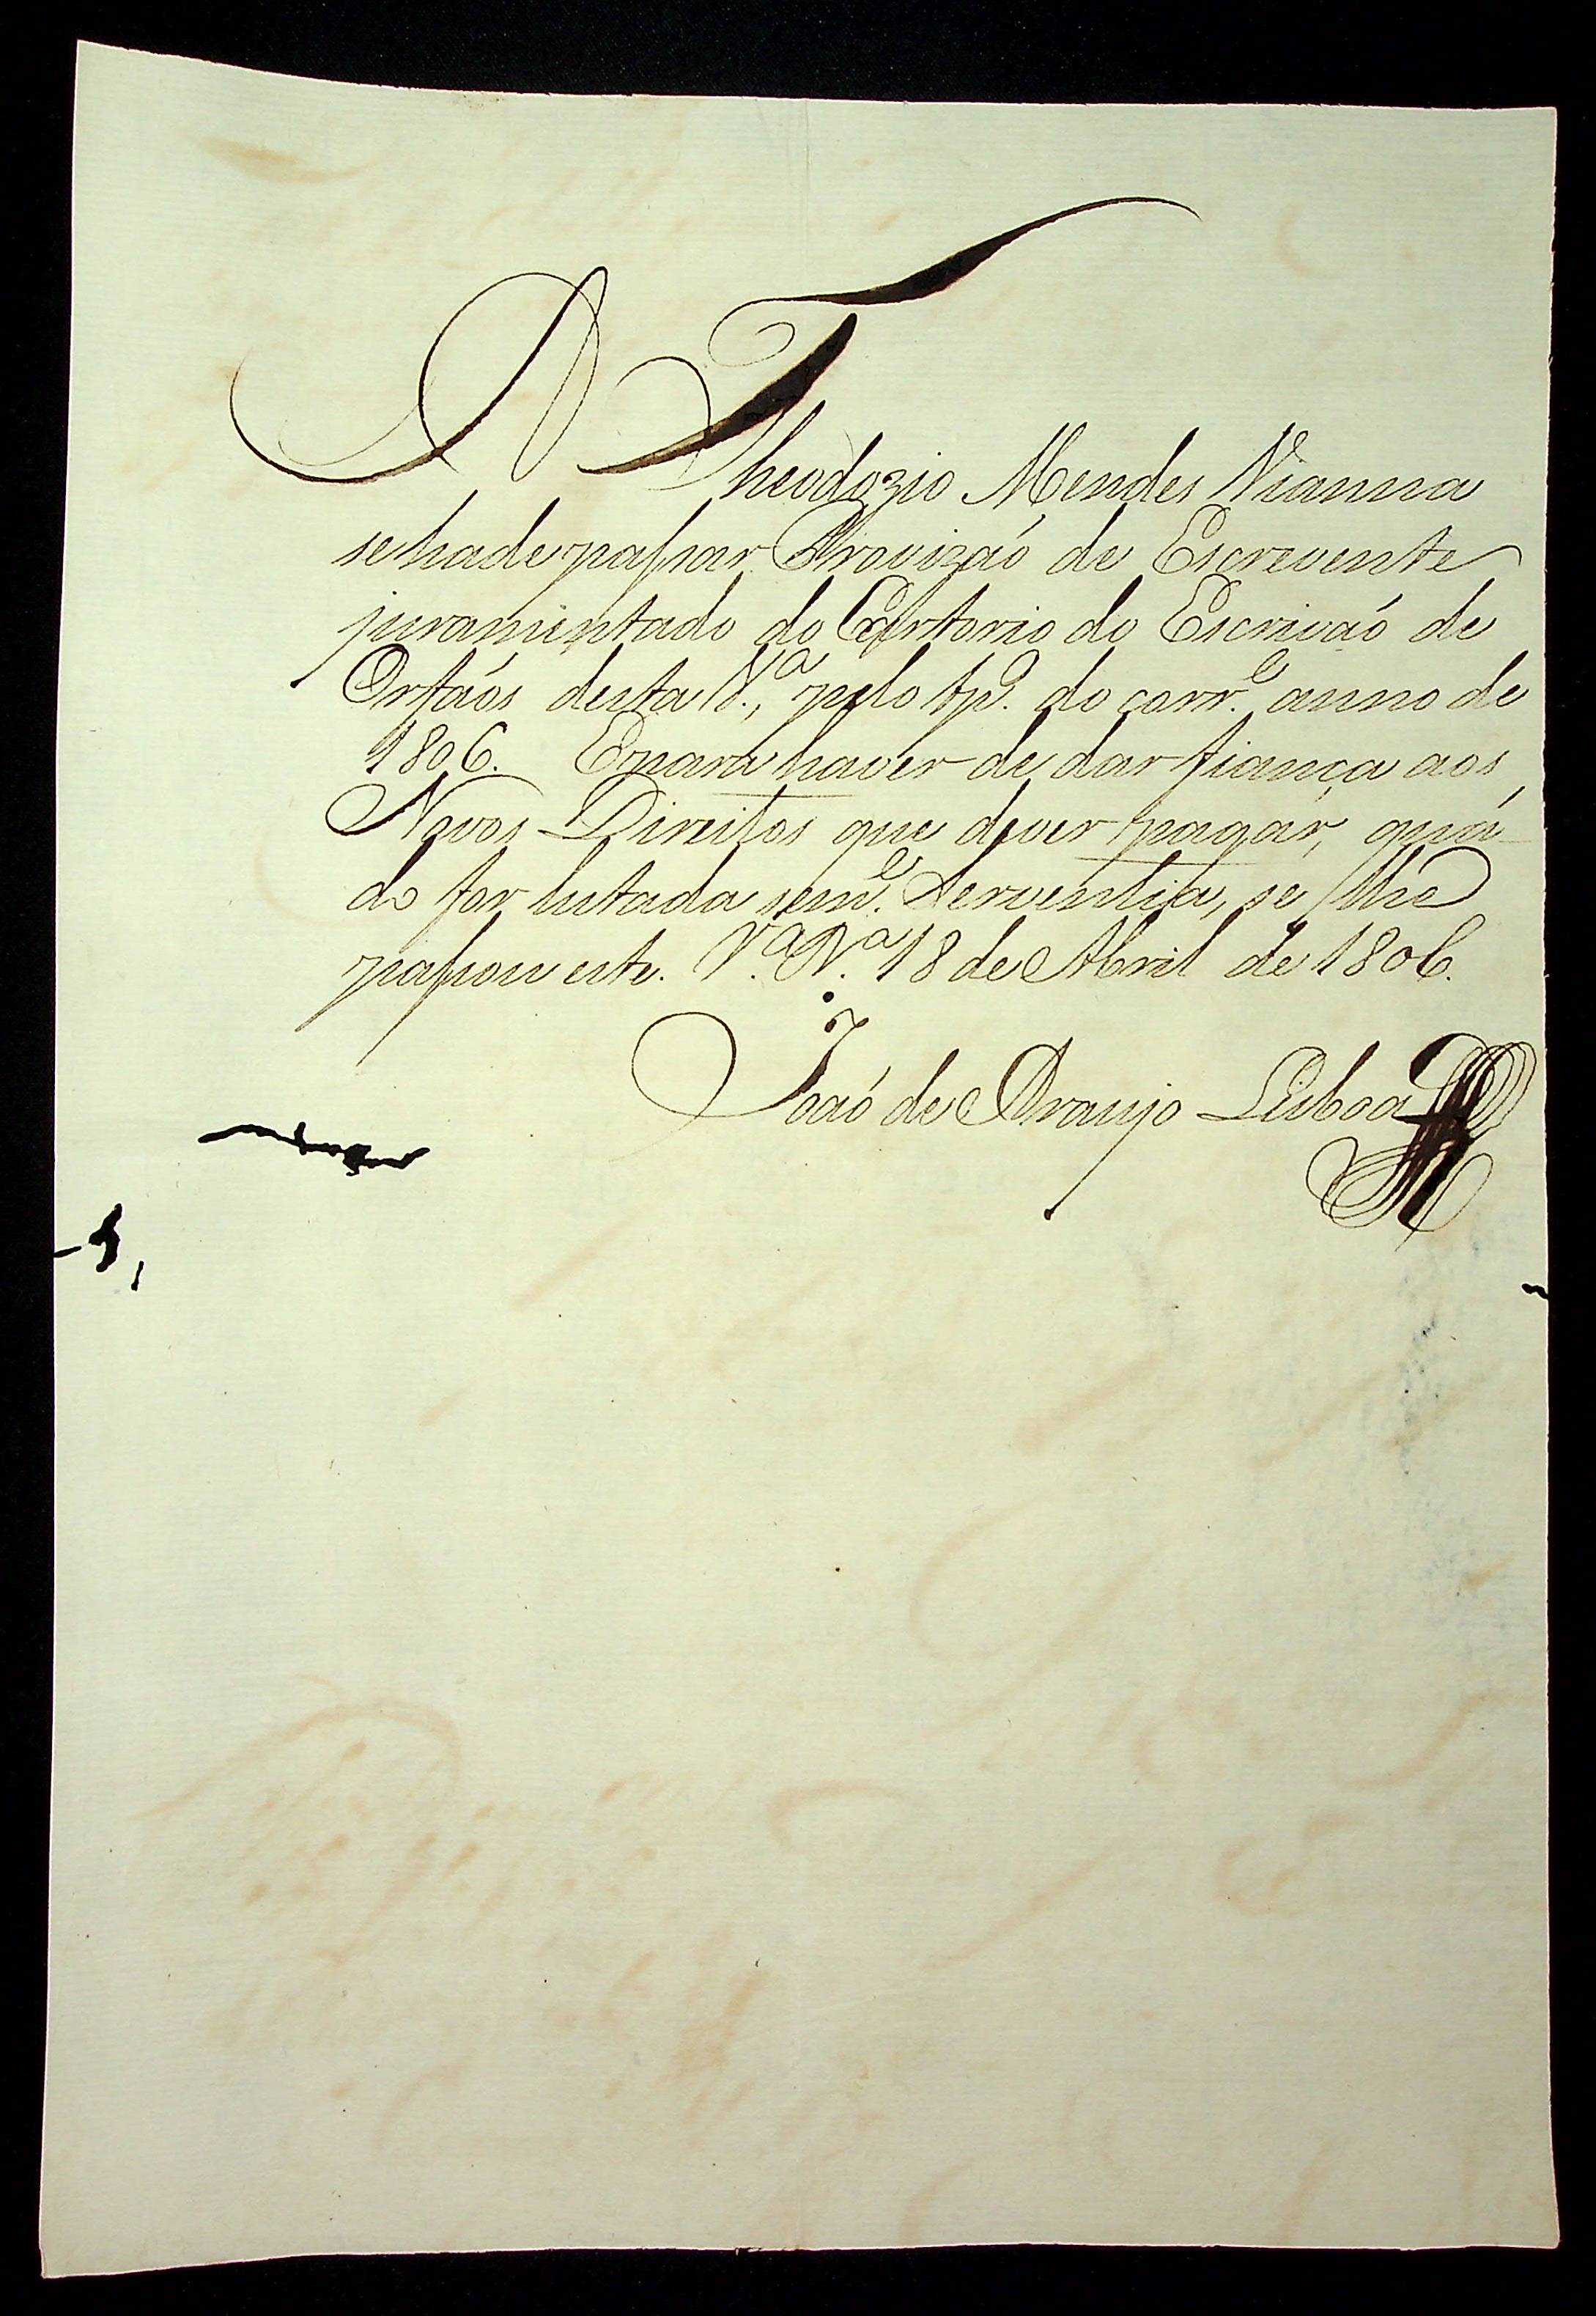 A Theodozio Mendes Vianna
se ha de passar Provizaó de Escrevente
juramentado do Cartorio do Escrivaó de
Orfaós desta V.ª, pelo tp.º do corr.e anno de
1806. E para haver de dar fiança aos
Novos Direitos que dever pagár, quan-
do for lutada sem.e Serventia, se lhe
passou este. V.ª N.ª 18 de Abril de 1806.
Joaó de Araujo Lisboa